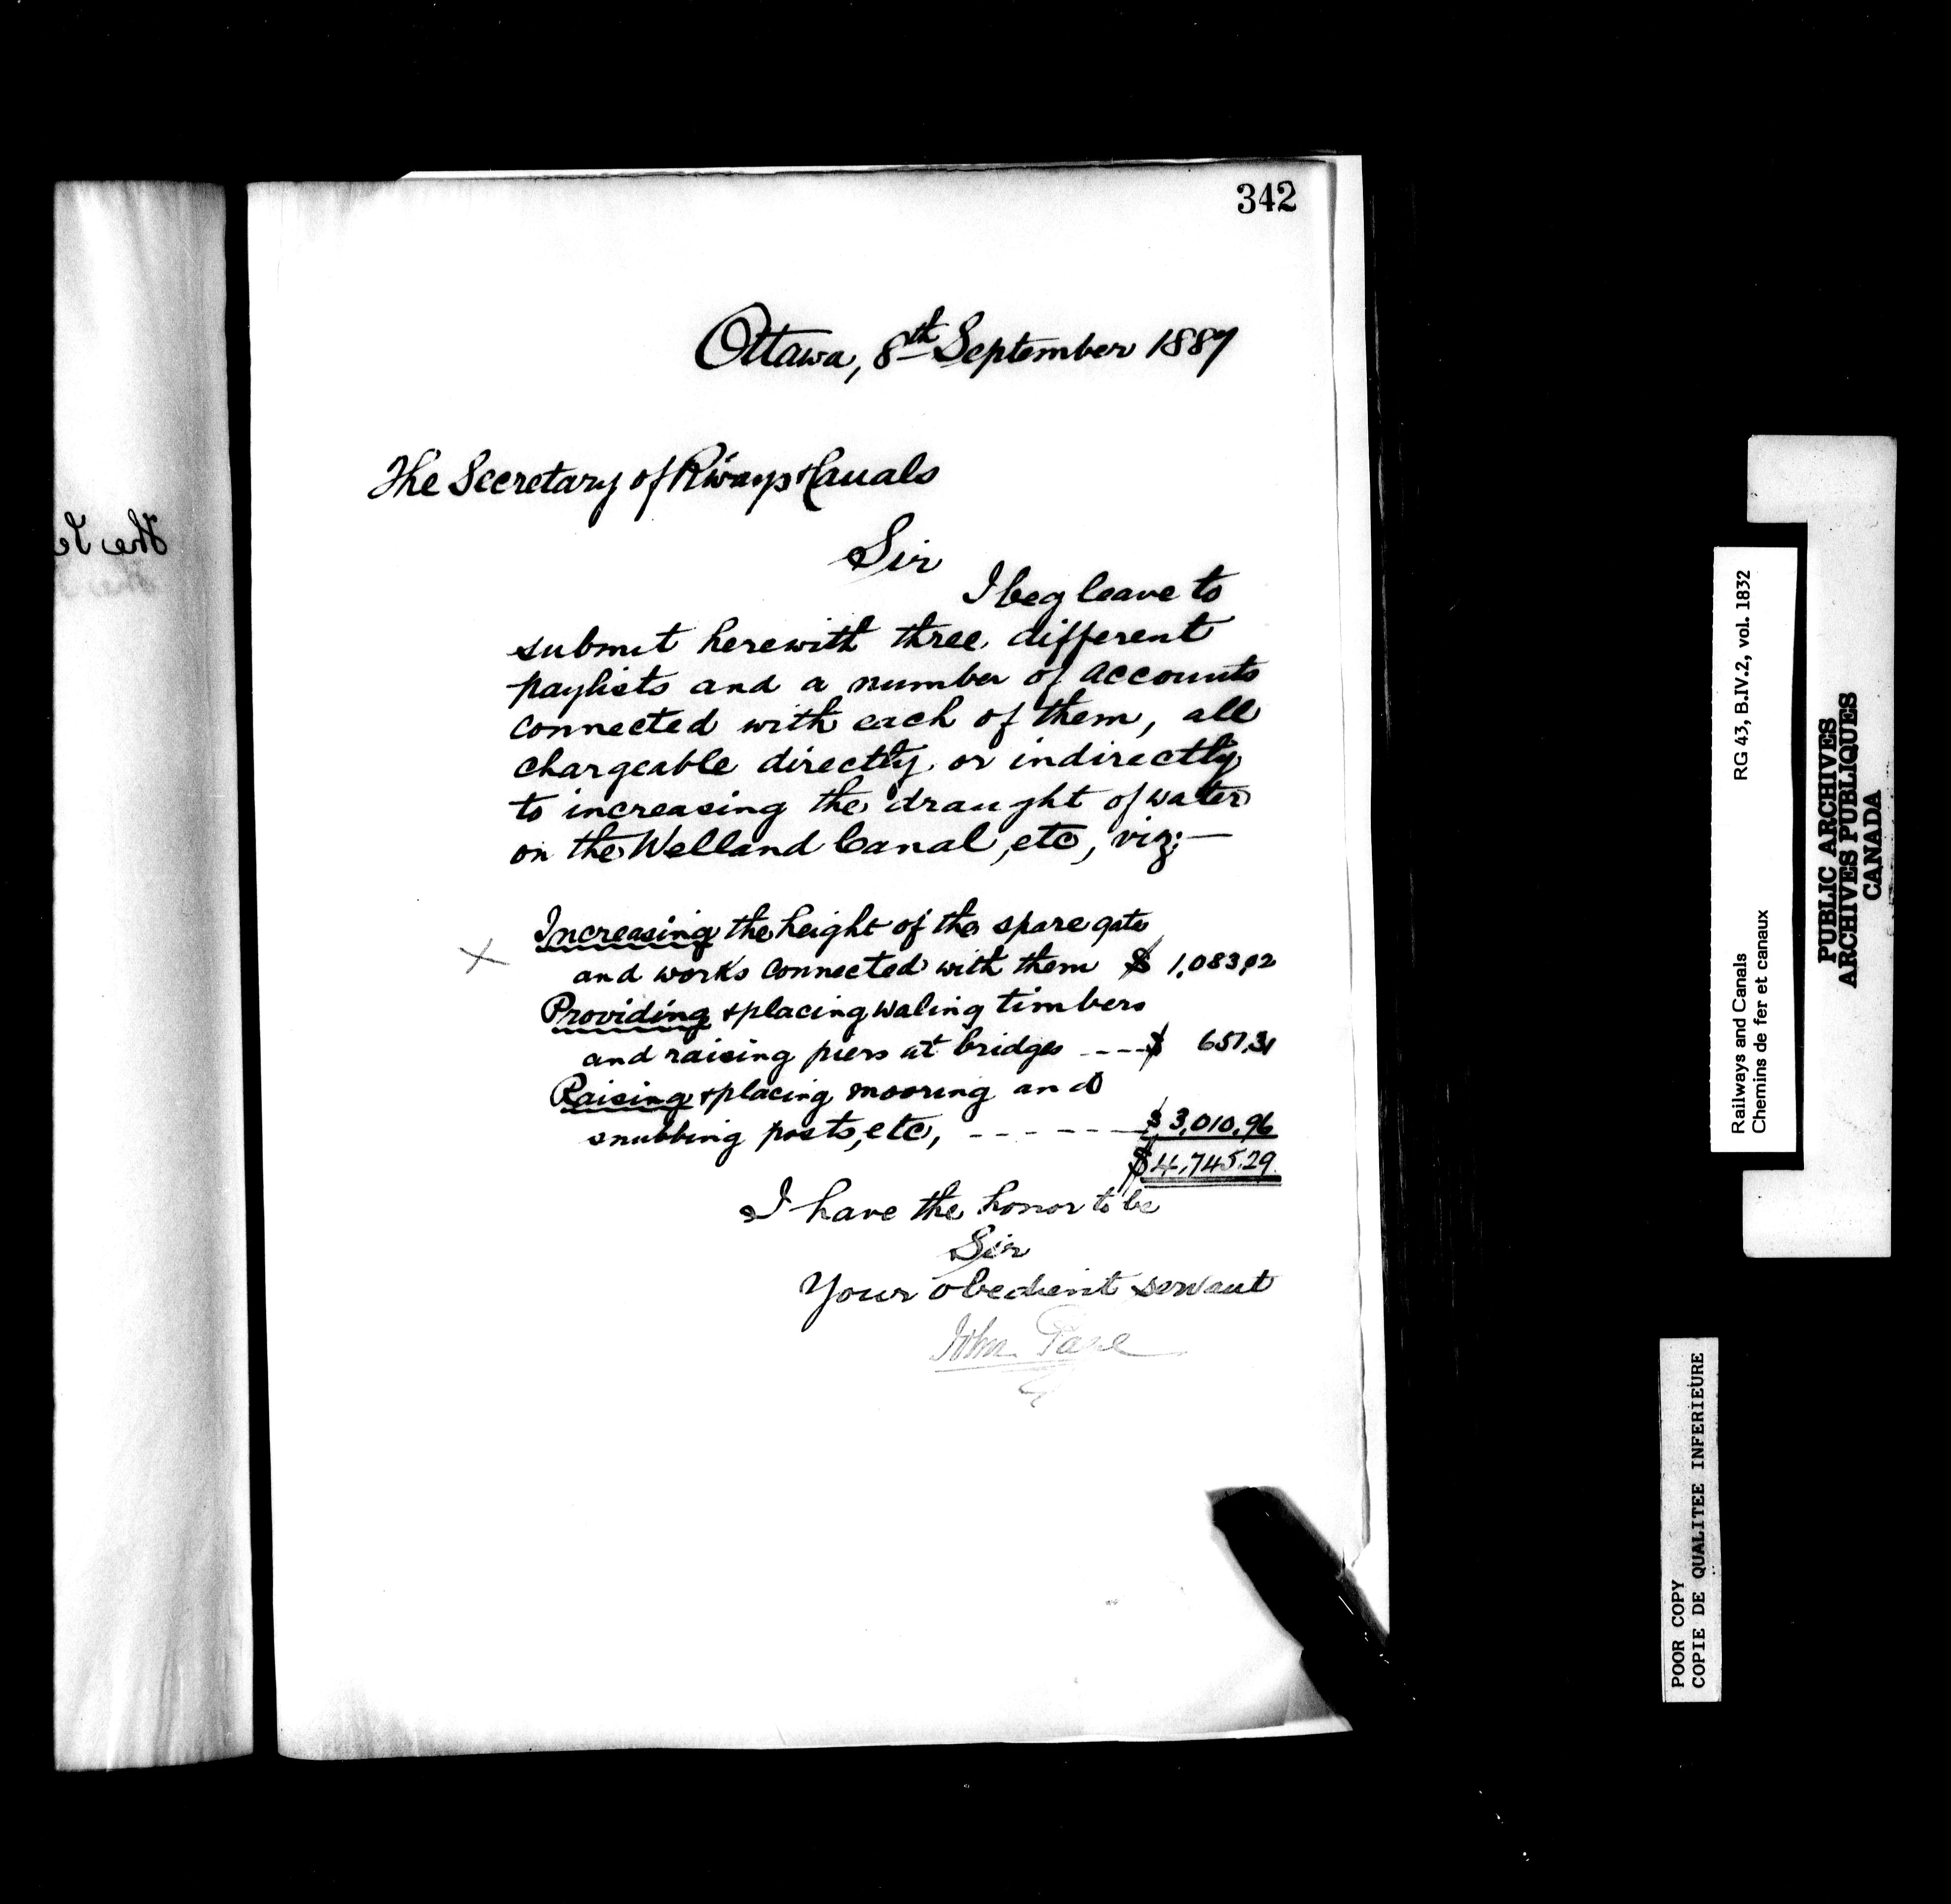 342
Ottawa, 8th September 1887
The Secretary of R'ways & Canals
Sir
I beg leave to
submit herewith three different
paylists and a number of accounts
connected with each of them, all
chargeable directly or indirectly
to increasing the draught of water
on the Welland Canal, etc, viz:—
Increasing the height of the spare gates
X and works connected with them $ 1,083,02
Providing & placing waling timbers
and raising piers at bridges ---- $ 651,31
Raising & placing mooring and
snubbing posts, etc, ------ $ 3,010,96
$ 4,745.29
I have the honor to be
Sir
Your obedient servant
John Page
Railways and Canals RG 43, B.IV.2, vol. 1832
Chemins de fer et canaux
PUBLIC ARCHIVES
ARCHIVES PUBLIQUES
CANADA
POOR COPY
COPIE DE QUALITEE INFERIEURE